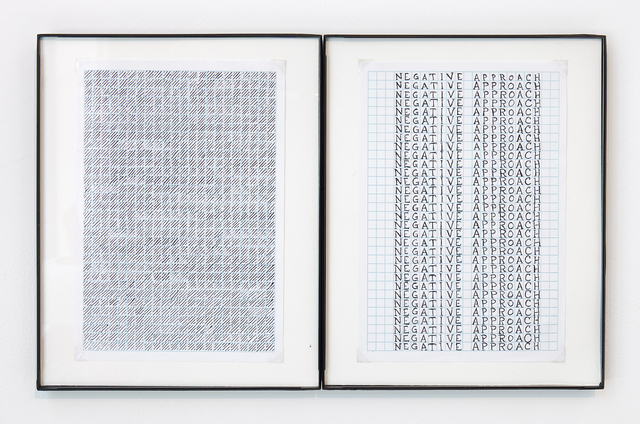 NEGATIVE APPROACH
NEGATIVE APPROACH
NEGATIVE APPROACH
NEGATIVE APPROACH
NEGATIVE APPROACH
NEGATIVE APPROACH
NEGATIVE APPROACH
NEGATIVE APPROACH
NEGATIVE APPROACH
NEGATIVE APPROACH
NEGATIVE APPROACH
NEGATIVE APPROACH
NEGATIVE APPROACH
NEGATIVE APPROACH
NEGATIVE APPROACH
NEGATIVE APPROACH
NEGATIVE APPROACH
NEGATIVE APPROACH
NEGATIVE APPROACH
NEGATIVE APPROACH
NEGATIVE APPROACH
NEGATIVE APPROACH
NEGATIVE APPROACH
NEGATIVE APPROACH
NEGATIVE APPROACH
NEGATIVE APPROACH
NEGATIVE APPROACH
NEGATIVE APPROACH
NEGATIVE APPROACH
NEGATIVE APPROACH
NEGATIVE APPROACH
NEGATIVE APPROACH